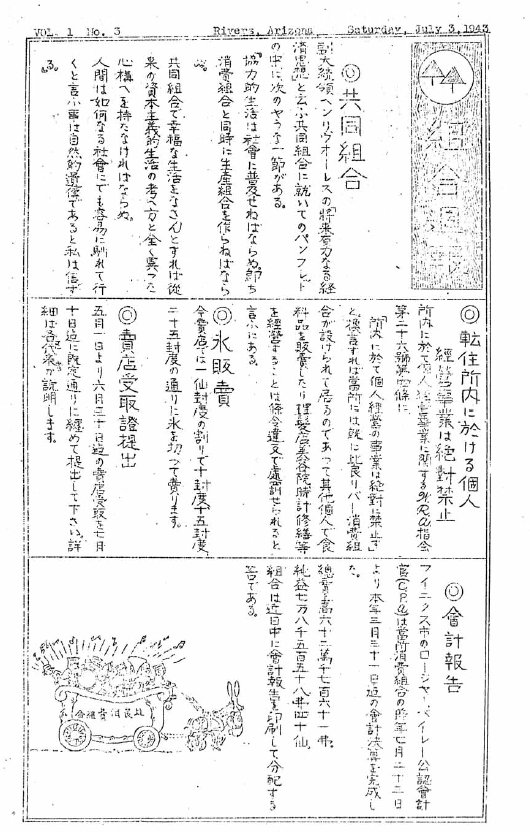 VOL. 1 No. 3 Rivers, Arizona Saturday, July 3, 1943
組合國報
◎共同組合
副大統領ヘンリウオーレスの「將來有力なる経
済思想」と云ふ共同組合に就いてのパンフレット
の中に、次のやうな一節がある。
「協力的生活は社會に普及せねばならぬ。即ち
消費組合と同時に生産組合を作らねばなら
ぬ。
共同組合で幸福な生活をなさんとすれば從
來の資本主義的生活の考へ方と全く異った
心構へを持たなければならぬ。
人間は如何なる社會にでも容易に馴れて行
くと言ふ事は自然的遺傳であると私は信ず
る。」
◎転住所内に於ける個人
経営事業は絶対禁止
所内に於て個人経営事業に関するWRA指令
第二十六號第四條に
「所内に於て個人経営の事業は絶対に禁止す」
と。換言すれば當所には就に比良リバー消費組
合が設けられて居るのであって其他個人で食
料品を販賣したり理髪店美容院時計修繕等
を経営することは條令違反で處罰せられると
言ふにある。
◎氷販賣
今賣店では一仙封度の割りで十封度、十五封度、
二十五封度の通りに氷を切って賣ります。
◎賣店受取證提出
五月一日より六月三十日迄の賣店受取を七月
十日迄に既定通りに纏めて提出して下さい。詳
細は各代表が説明します。
◎會計報告
フイニクス市のロージャー、ベイレー公認會計
官(CPA)は當所消費組合の昨年七月二十二日
より本年三月三十一日迄の會計決算を完成し
た。
總賣上高六十二萬千七百六十一弗
純益七万八千五百五十八弗四十仙、
組合は近日中に會計報告書を印刷して分配する
筈である。
合組費消民比